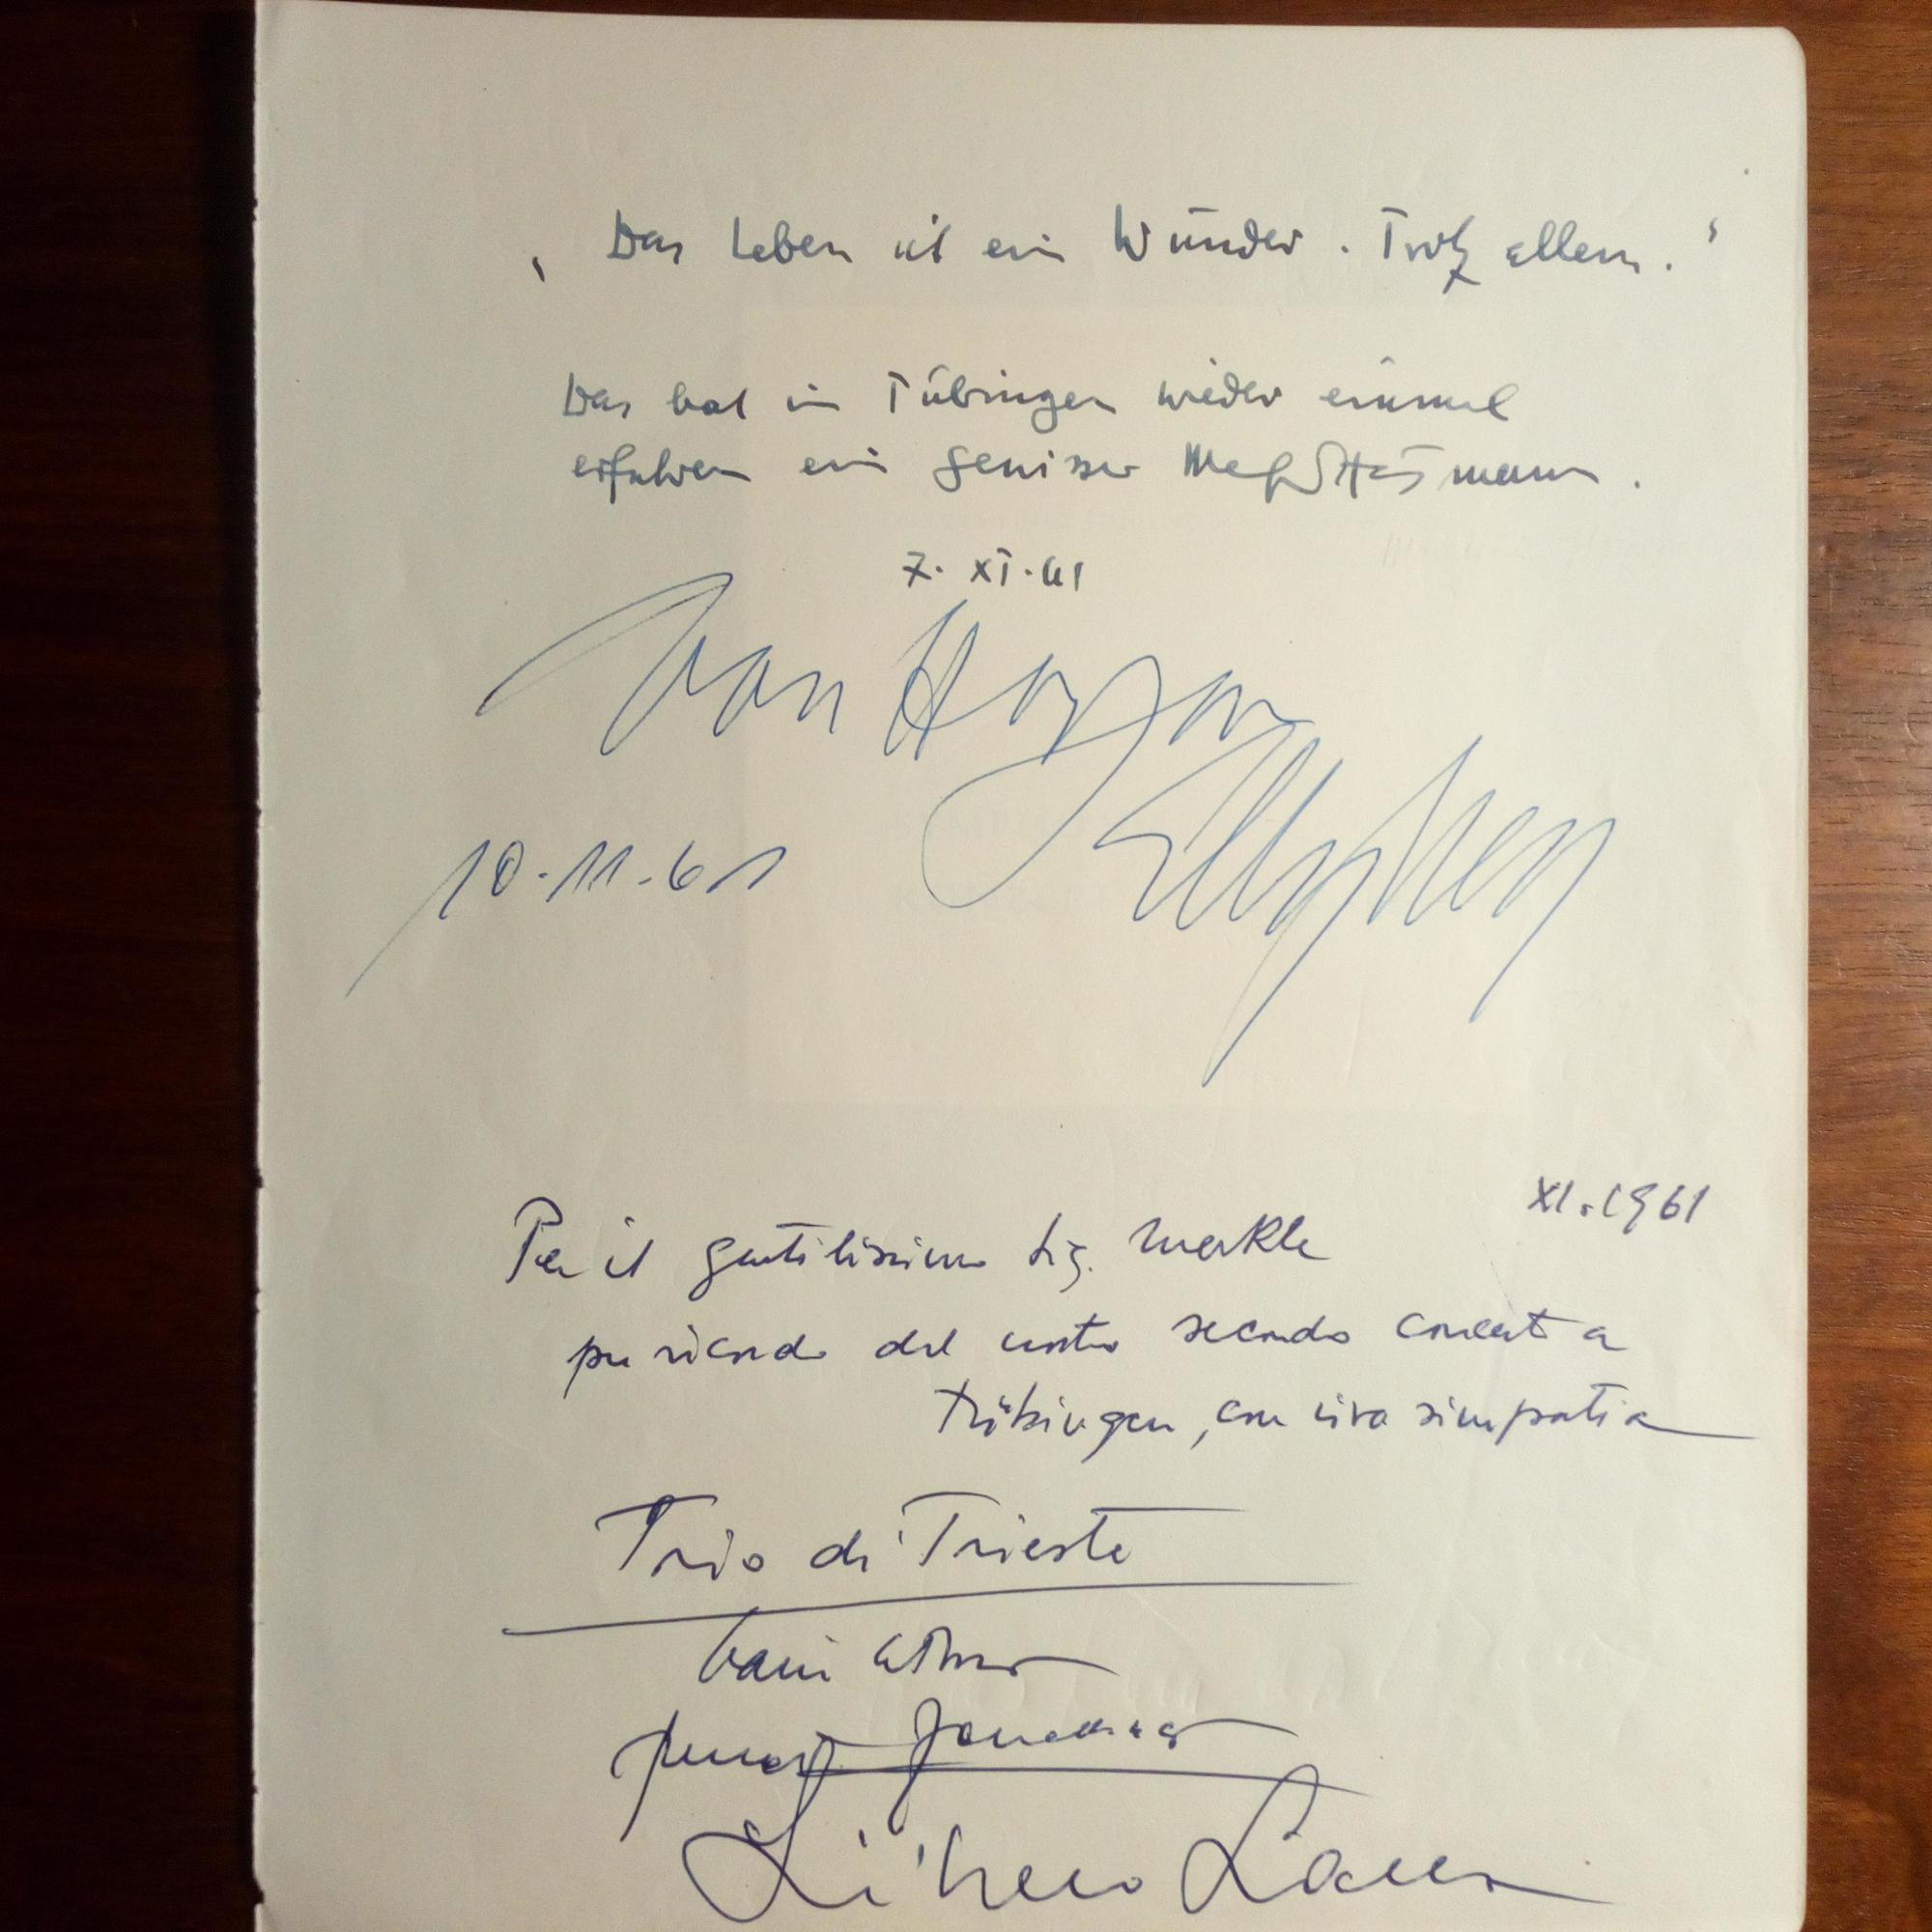 „Das Leben ist ein Wunder. Trotz allem.“
Das hat in Tübingen wieder einmal
erfahren ein gewisser
7. XI. 61
10.11.61
XI.1961
Per il gentilissimo Sig. Merkle
per ricordo del nostro secondo concerto a
Tübingen, con viva simpatia
Trio di Trieste
Libero Lana